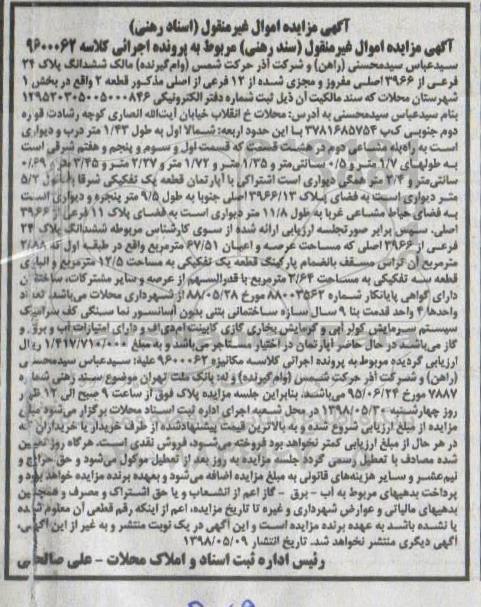 آگهی مزایده اموال غیرمنقول (اسناد رهنی)
آگهی مزایده اموال غیرمنقول (سند رهنی) مربوط به پرونده اجرائی کلاسه ۹۶۰۰۰۶۲
سیدعباس سیدمحسنی (راهن) و شرکت آذر حرکت شمس (وام‌گیرنده) مالک ششدانگ پلاک ۲۴
فرعی از ۳۹۶۶ اصلی مفروز و مجزی شده از ۱۲ فرعی از اصلی مذکور قطعه ۲ واقع در بخش ۱
شهرستان محلات که سند مالکیت آن ذیل ثبت شماره دفتر الکترونیکی ۱۳۹۵۲۰۳۰۵۰۰۵۰۰۰۸۴۶
بنام سیدعباس سیدمحسنی به آدرس: محلات خ انقلاب خیابان آیت‌الله انصاری کوچه رشادت قواره
دوم جنوبی ک‌پ ۳۷۸۱۶۸۵۷۵۴ با این حدود اربعه: شمالا اول به طول ۱/۴۳ متر درب و دیواری
است به راه‌پله مشاعی دوم در هشت قسمت که قسمت اول و سوم و پنجم و هفتم شرقی است
به طولهای ۱/۷ متر و ۰/۵ سانتی‌متر و ۱/۳۵ متر و ۱/۷۲ متر و ۲/۲۷ متر و ۳/۴۵ متر و ۰/۶۹
سانتی‌متر و ۲/۴ متر همگی دیواری است اشتراکی با آپارتمان قطعه یک تفکیکی شرقا به طول ۵/۳
متر دیواری است به فضای پلاک ۳۹۶۶/۱۳ اصلی جنوبا به طول ۹/۵ متر پنجره و دیواری است
به فضای حیاط مشاعی غربا به طول ۱۱/۸ متر دیواری است به فضای پلاک ۱۱ فرعی از ۳۹۶۶
اصلی. سپس برابر صورتجلسه ارزیابی ارائه شده از سوی کارشناس مربوطه ششدانگ پلاک ۲۴
فرعی از ۳۹۶۶ اصلی که مساحت عرصه و اعیان ۶۷/۵۱ مترمربع واقع در طبقه اول که ۲/۸۸
مترمربع آن تراس مسقف بانضمام پارکینگ قطعه یک تفکیکی به مساحت ۱۲/۵ مترمربع و انباری
قطعه سه تفکیکی به مساحت ۲/۶۴ مترمربع با قدرالسهم از عرصه و سایر مشترکات، ساختمان
دارای گواهی پایانکار شماره ۸۸۰۰۳۵۶۲ مورخ ۸۸/۰۵/۲۸ از شهرداری محلات می‌باشد. تعداد
واحدها ۴ واحد قدمت بنا ۹ سال سازه ساختمانی بتنی بدون آسانسور نما سنگی کف سرامیک
سیستم سرمایش کولر آبی و گرمایش بخاری گازی کابینت ام‌دی‌اف و دارای امتیازات آب و برق و
گاز می‌باشد در حال حاضر آپارتمان در اختیار مستاجر می‌باشد و به مبلغ ۱/۴۱۷/۷۱۰/۰۰۰ ریال
ارزیابی گردیده مربوط به پرونده اجرائی کلاسه مکانیزه ۹۶۰۰۰۶۲ علیه: سیدعباس سیدمحسنی
(راهن) و شرکت آذر حرکت شمس (وام‌گیرنده) و له: بانک ملت تهران موضوع سند رهنی شماره
۷۸۸۷ مورخ ۹۵/۰۶/۲۴ می‌باشد. بنابراین جلسه مزایده پلاک فوق از ساعت ۹ صبح الی ۱۲ ظهر
روز چهارشنبه ۱۳۹۸/۰۵/۳۰ در محل شعبه اجرای اداره ثبت اسناد محلات برگزار می‌شود مبلغ
مزایده از مبلغ ارزیابی شروع شده و به بالاترین قیمت پیشنهادشده از طرف خریدار یا خریداران که
در هر حال از مبلغ ارزیابی کمتر نخواهد بود فروخته می‌شود، فروش نقدی است. هرگاه روز تعیین
شده مصادف با تعطیل رسمی گردد جلسه مزایده به روز بعد از تعطیل موکول می‌شود و حق حراج و
نیم‌عشر و سایر هزینه‌های قانونی به مبلغ مزایده اضافه می‌شود و بعهده برنده مزایده خواهد بود و
پرداخت بدهیهای مربوط به آب - برق - گاز اعم از انشعاب و یا حق اشتراک و مصرف و همچنین
بدهیهای مالیاتی و عوارض شهرداری و غیره تا تاریخ مزایده، اعم از اینکه رقم قطعی آن معلوم شده
یا نشده باشد به عهده برنده مزایده است و این آگهی در یک نوبت منتشر و به غیر از این آگهی،
آگهی دیگری منتشر نخواهد شد. تاریخ انتشار ۱۳۹۸/۰۵/۰۹
رئیس اداره ثبت اسناد و املاک محلات - علی صالحی